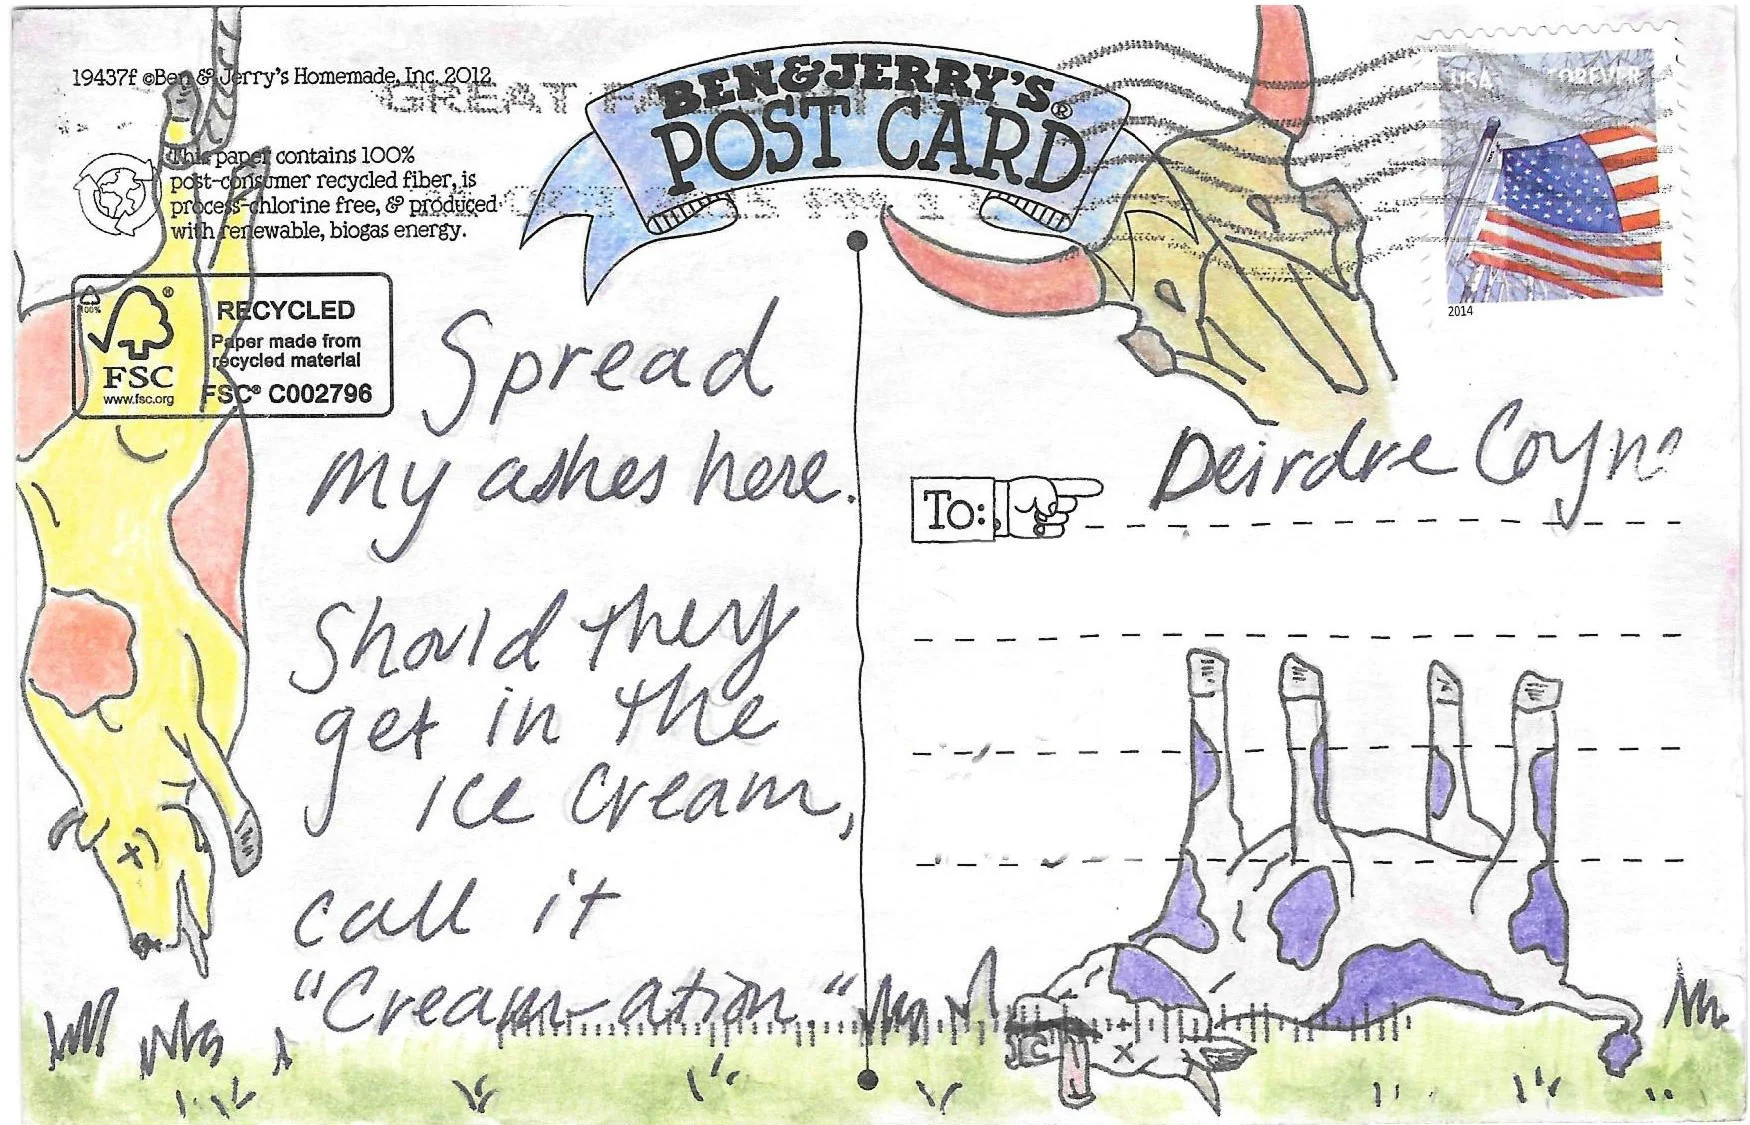 19437f ©Ben & Jerry's Homemade, Inc. 2012
This paper contains 100%
post-consumer recycled fiber, is
process-chlorine free, & produced
with renewable, biogas energy.
100%
FSC®
www.fsc.org
RECYCLED
Paper made from
recycled material
FSC® C002796
BEN&JERRY'S®
POST CARD
GREAT
USA FOREVER
2014
Spread
my ashes here.
Should they
get in the
ice cream,
call it
"Cream-ation."
To:
Deirdre Coyne